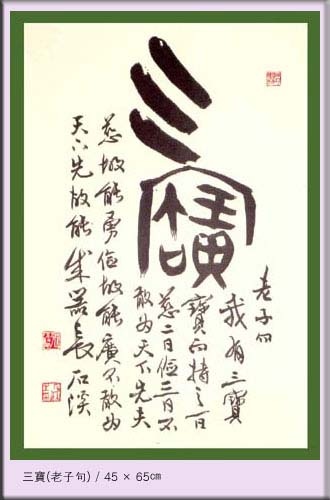 三寶
老子曰
我有三寶
寶而持之一曰
慈二曰儉三曰不
敢為天下先夫
慈故能勇儉故能廣不敢為
天下先故能成器長 石溪
三寶(老子句) / 45 × 65㎝